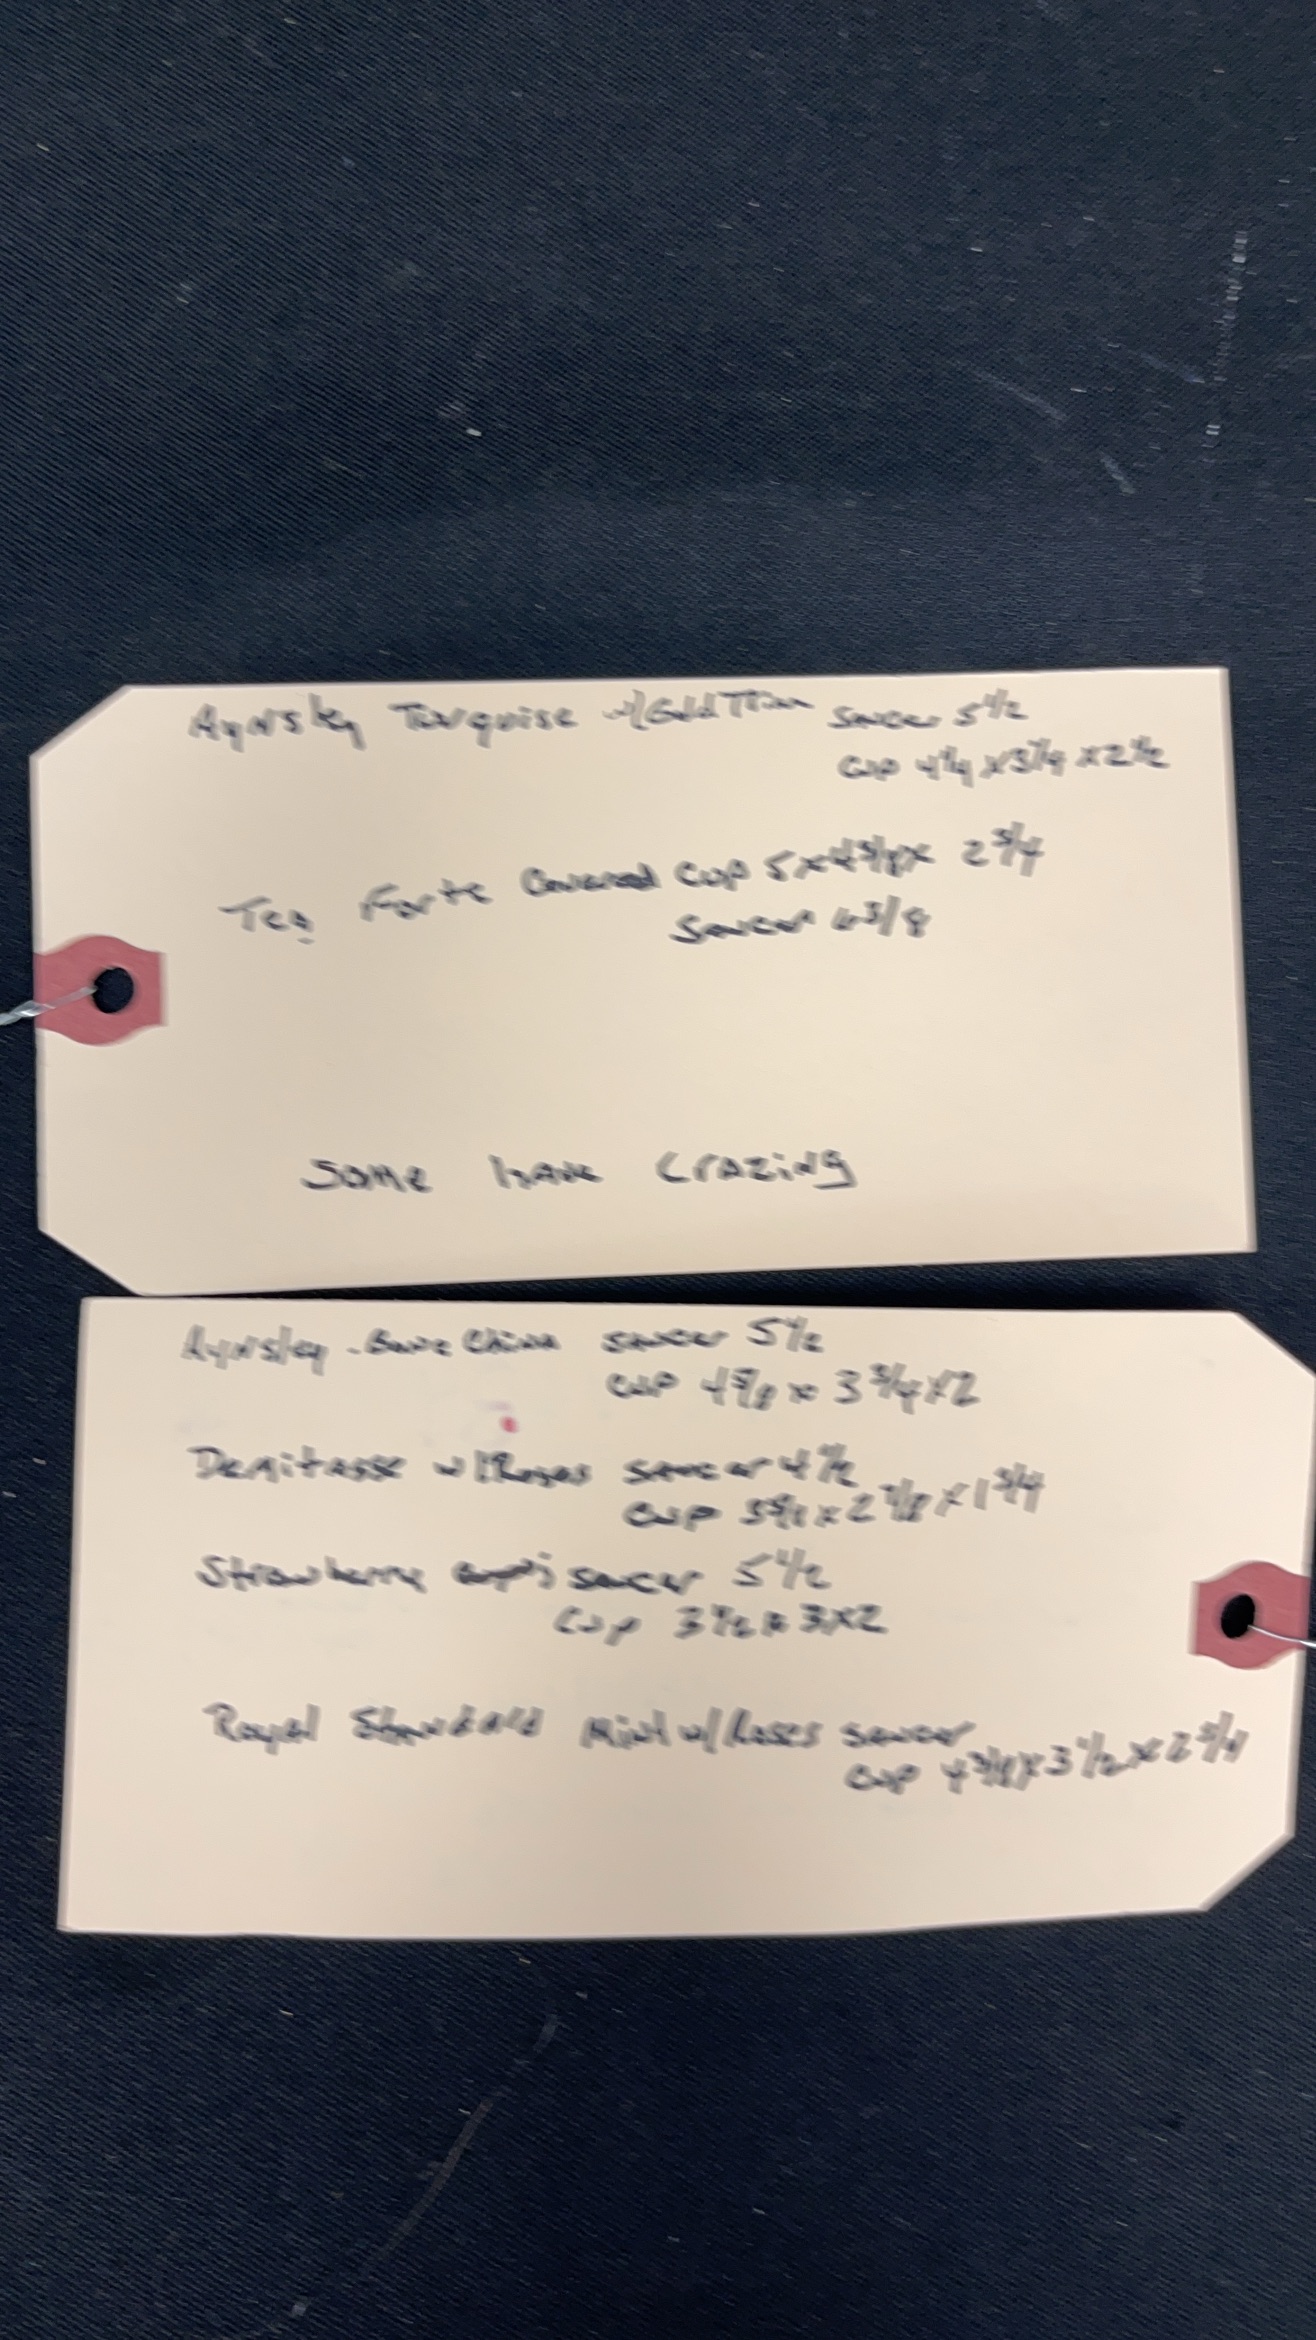 Aynsley Turquoise w/Gold Trim Saucer 5 1/2
Cup 4 1/4 x 3 1/4 x 2 1/2
Tea Forte Covered Cup 5 x 4 5/8 x 2 3/4
Saucer 6 3/8
Some have Crazing
Aynsley - Bone China saucer 5 1/2
Cup 4 5/8 x 3 3/4 x 2
Demitasse w/Roses saucer 4 1/2
Cup 3 5/8 x 2 7/8 x 1 3/4
Strawberry saucer 5 1/2
Cup 3 1/2 x 3 x 2
Royal Standard Mint w/Roses saucer
Cup 4 3/8 x 3 1/2 x 2 3/4